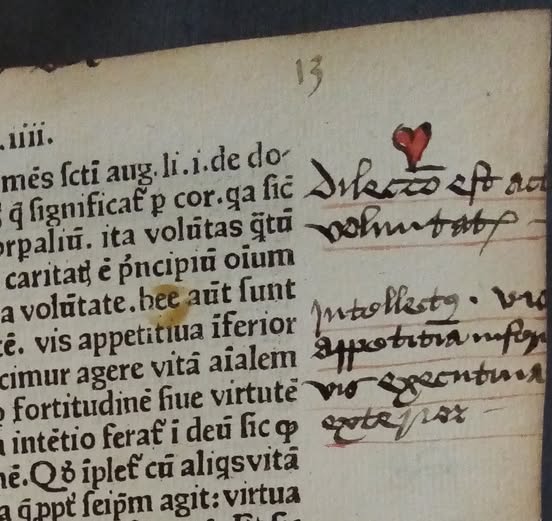 13
.iiii.
mēs scti aug. li. i. de do-
q̄ significat̄ p cor. qa sic̄
orpaliū. ita volūtas q̄tū
caritat ē p̄ncipiū oīum
a volūtate. hee aūt sunt
cē. vis appetitiua īferior
cimur agere vitā aīalem
fortitudinē siue virtutē
intētio ferat̄ ī deū sic ꝙ
nē. Qđ īplet̄ cū aliqs vitā
a q̄ ppt̄ seipm̄ agit: virtua
Dilectō est act
voluntat
Intellectꝰ. vis
appetitīa infer
vis executiua
exterior